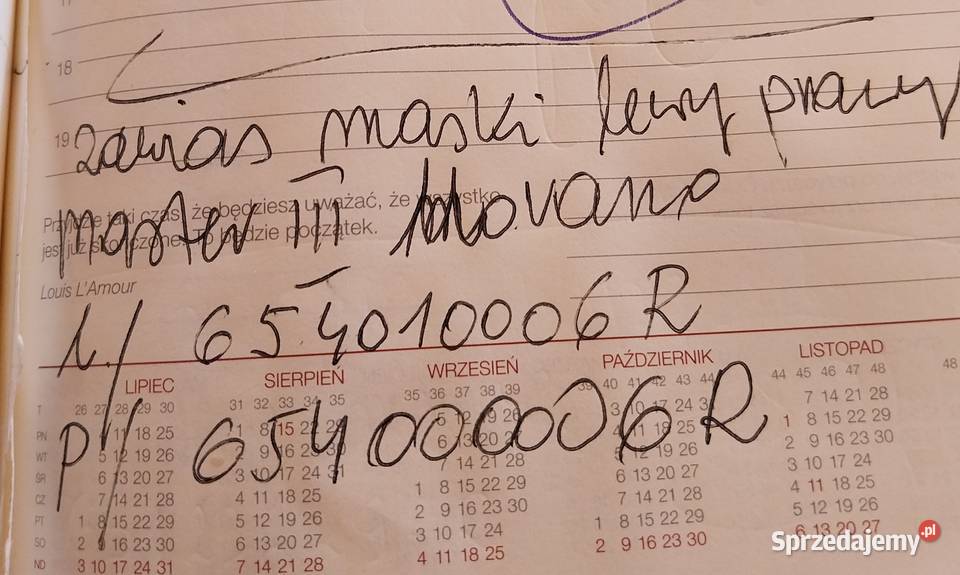 18
19 zawias maski lewy prawy
Przyjdzie taki czas, że będziesz uważać, że wszystko
master III Movano
jest już skończone. To będzie początek.
Louis L'Amour
L/ 654010006R
P/ 654000006R
LIPIEC SIERPIEŃ WRZESIEŃ PAŹDZIERNIK LISTOPAD
T 26 27 28 29 30 31 32 33 34 35 35 36 37 38 39 39 40 41 42 43 44 44 45 46 47 48 48
PN 11 18 25 1 8 15 22 29 5 12 19 26 3 10 17 24 31 7 14 21 28
WT 5 12 19 26 2 9 16 23 30 6 13 20 27 4 11 18 25 1 8 15 22 29
ŚR 6 13 20 27 3 10 17 24 31 7 14 21 28 5 12 19 26 2 9 16 23 30
CZ 7 14 21 28 4 11 18 25 1 8 15 22 29 6 13 20 27 3 10 17 24
PT 1 8 15 22 29 5 12 19 26 2 9 16 23 30 7 14 21 28 4 11 18 25
SO 2 9 16 23 30 6 13 20 27 3 10 17 24 1 8 15 22 29 5 12 19 26
ND 3 10 17 24 31 7 14 21 28 4 11 18 25 2 9 16 23 30 6 13 20 27
Sprzedajemy.pl